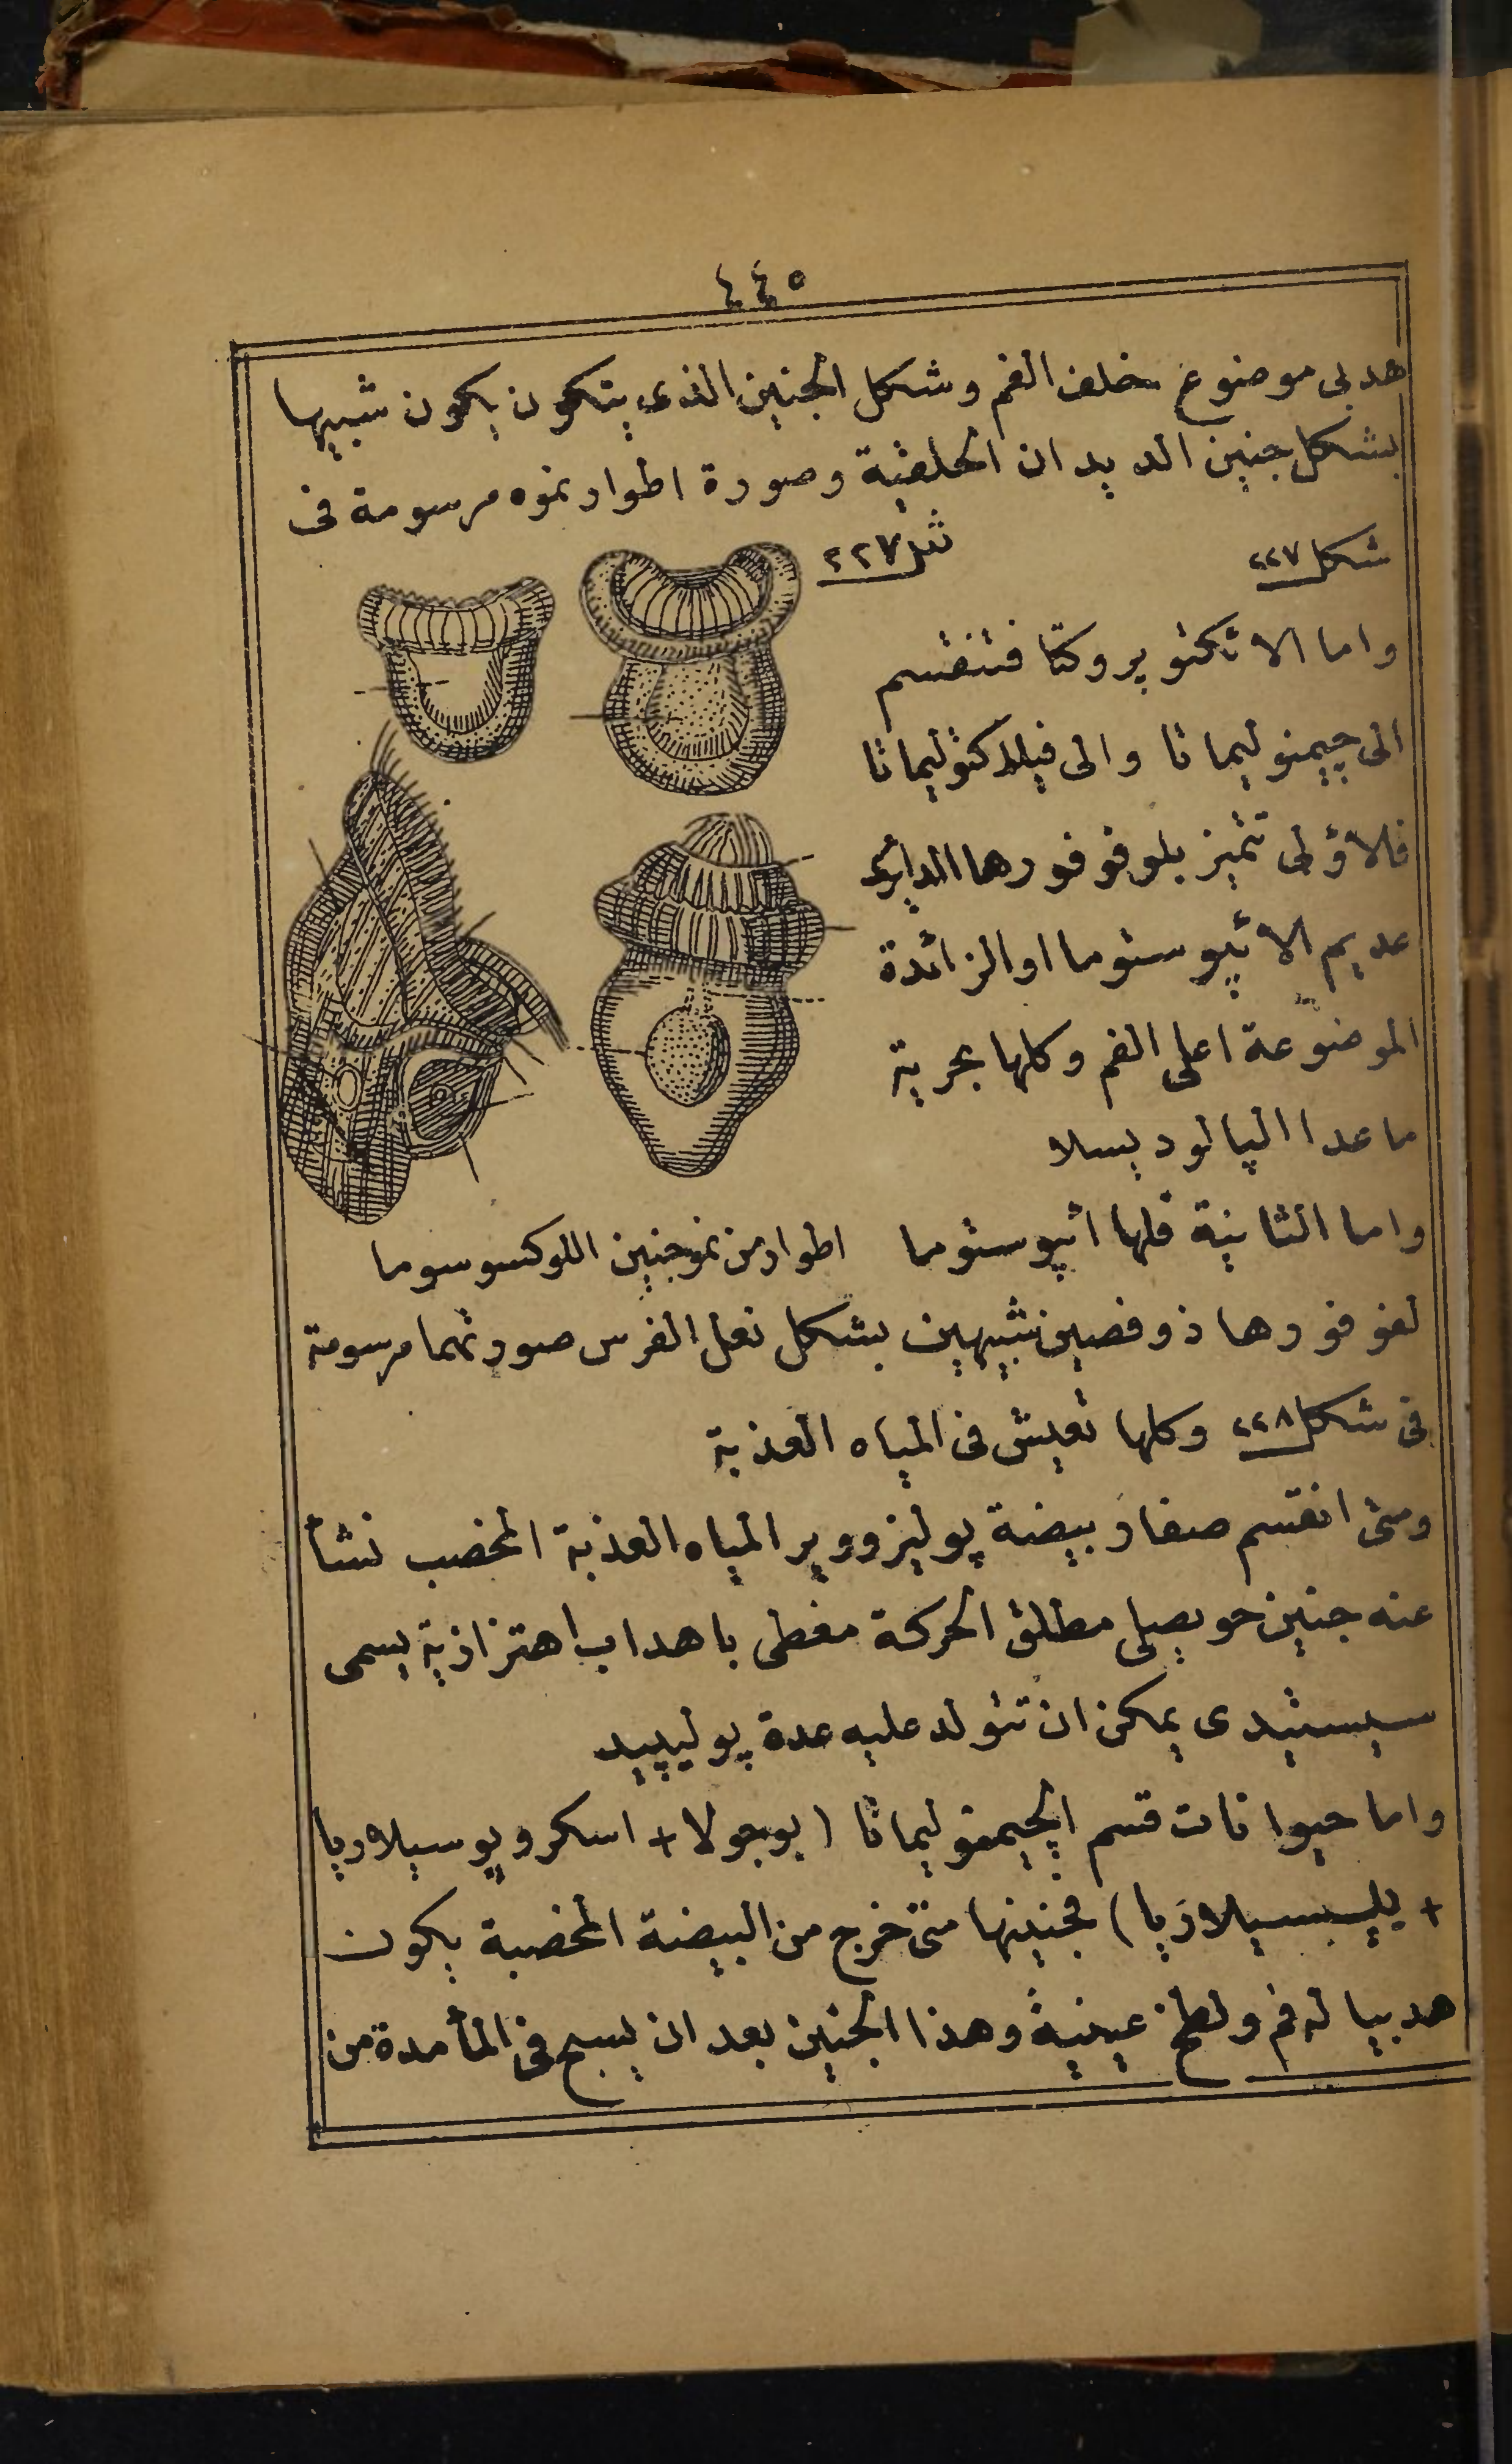 ٤٤٥
هدبى موضوع خلف الفم وشكل الجنين الذى يتكون يكون شبيها
بشكل جنين الديدان الحلقية وصورة اطوار نموه مرسومة فى
شكل ٢٢٧
شكل ٢٢٧
واما الاتكتو پروكتا فتنقسم
الى چيمنوليماتا والى فيلاكتوليماتا
فلاؤلى تتميز بلوفوفورها الدايرى
عديم الاپيوستوما او الزائدة
الموضوعة اعلى الفم وكلها بحرية
ما عدا الپالوديسلا
واما الثانية فلها اپيوستوما
اطوار من نمو جنين اللوكسوسوما
لفوفورها ذو فصين شبيهين بشكل نعل الفرس صورتهما مرسومة
فى شكل ٢٢٨ وكلها تعيش فى المياه العذبة
ومتى انقسم صفار بيضة پوليزووير المياه العذبة المخصب نشأ
عنه جنين حويصلى مطلق الحركة مغطى باهداب اهتزازية يسمى
سيستيدى يمكن ان تتولد عليه عدة پوليپيد
واما حيوانات قسم الچيمنوليماتا (بوجولا + اسكروپوسيلاريا
+ پليسيلاريا) فجنينها متى خرج من البيضة المخصبة يكون
هدبيا له فم ولطخ عينية وهذا الجنين بعد ان يسبح فى الماء مدة من